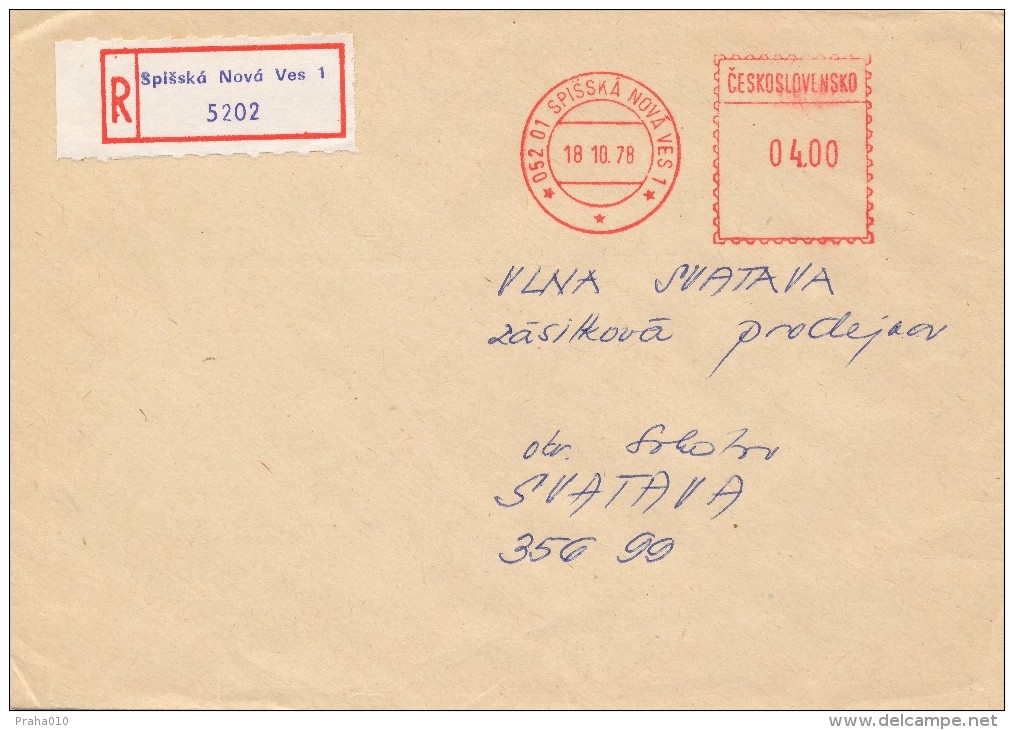 R
Spišská Nová Ves 1
5202
052 01 SPIŠSKÁ NOVÁ VES 1
18 10. 78
ČESKOSLOVENSKO
04.00
VLNA SVATAVA
zásilková prodejna
okr. Sokolov
SVATAVA
356 99
Praha010
www.delcampe.net